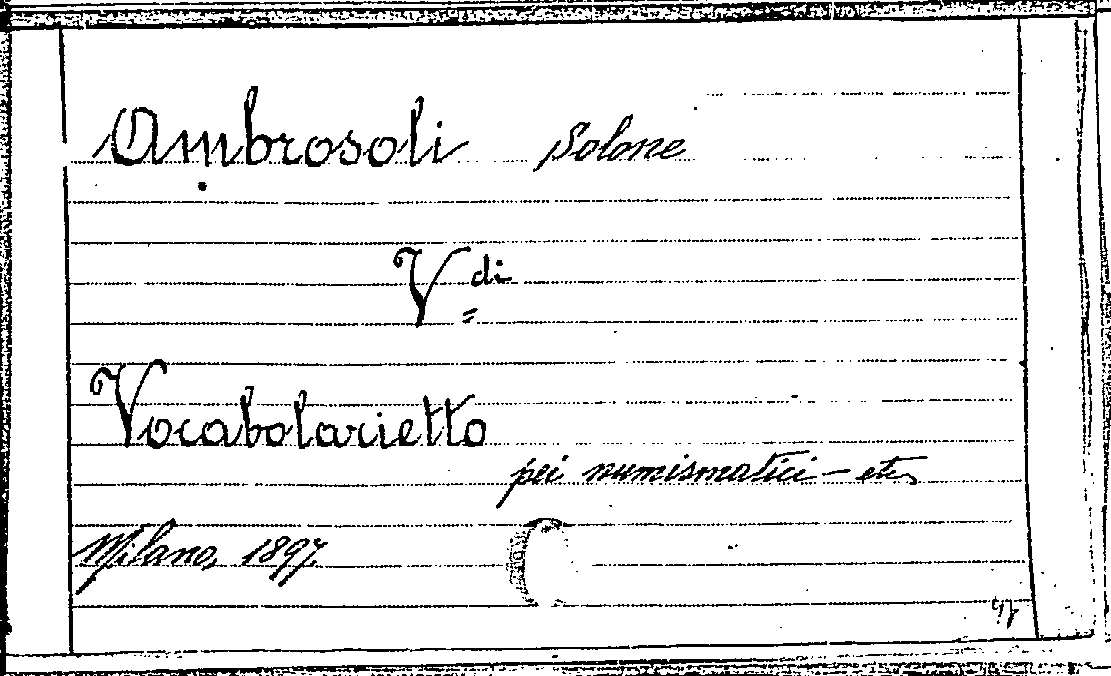 Ambrosoli Solone
V di
=
Vocabolarietto
pei numismatici - etc
Milano, 1897.